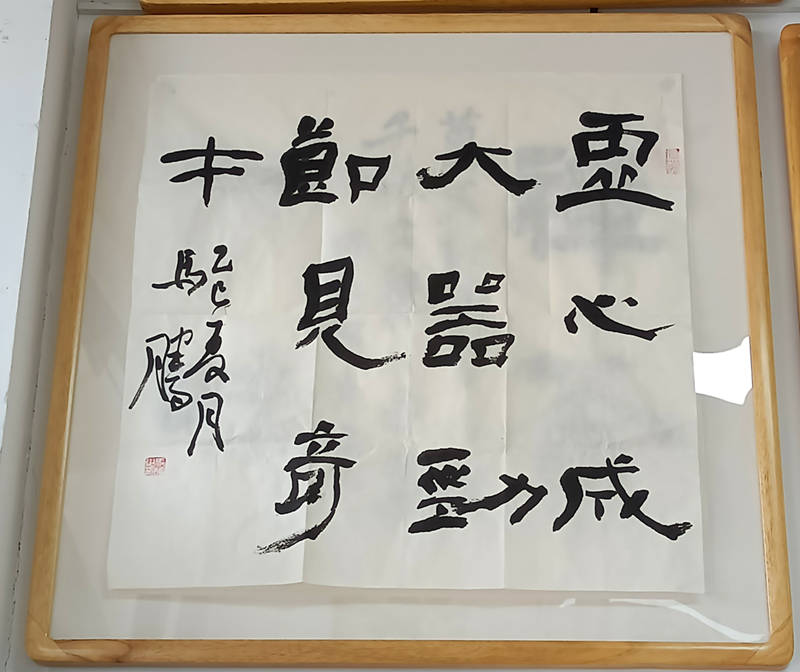 虛心成
大器勁
節見奇
才
乙巳夏月
馬騰